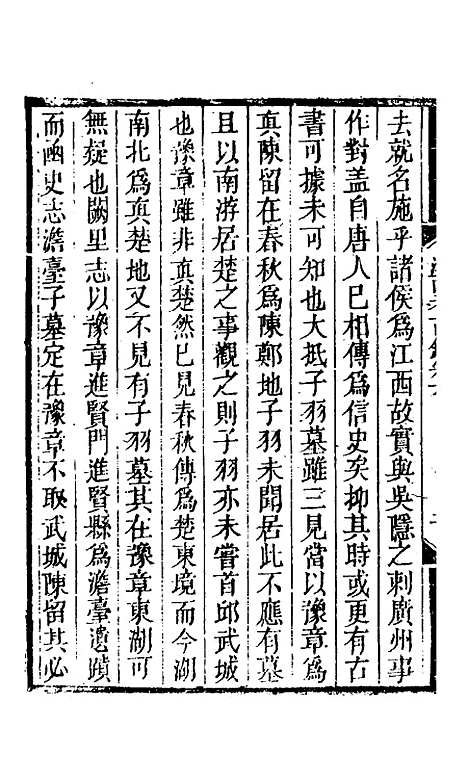 去就名施乎諸侯爲江西故實與吳隱之刺廣州事
作對盖自唐人已相傳爲信史矣抑其時或更有古
書可據未可知也大抵子羽墓雖三見當以豫章爲
眞陳留在春秋爲陳鄭地子羽未聞居此不應有墓
且以南游居楚之事觀之則子羽亦未嘗首邱武城
也豫章雖非眞楚然已見春秋傳爲楚東境而今湖
南北爲眞楚地又不見有子羽墓其在豫章東湖可
無疑也闕里志以豫章進賢門進賢縣爲澹臺遺蹟
而函史志澹臺子墓定在豫章不取武城陳留其必